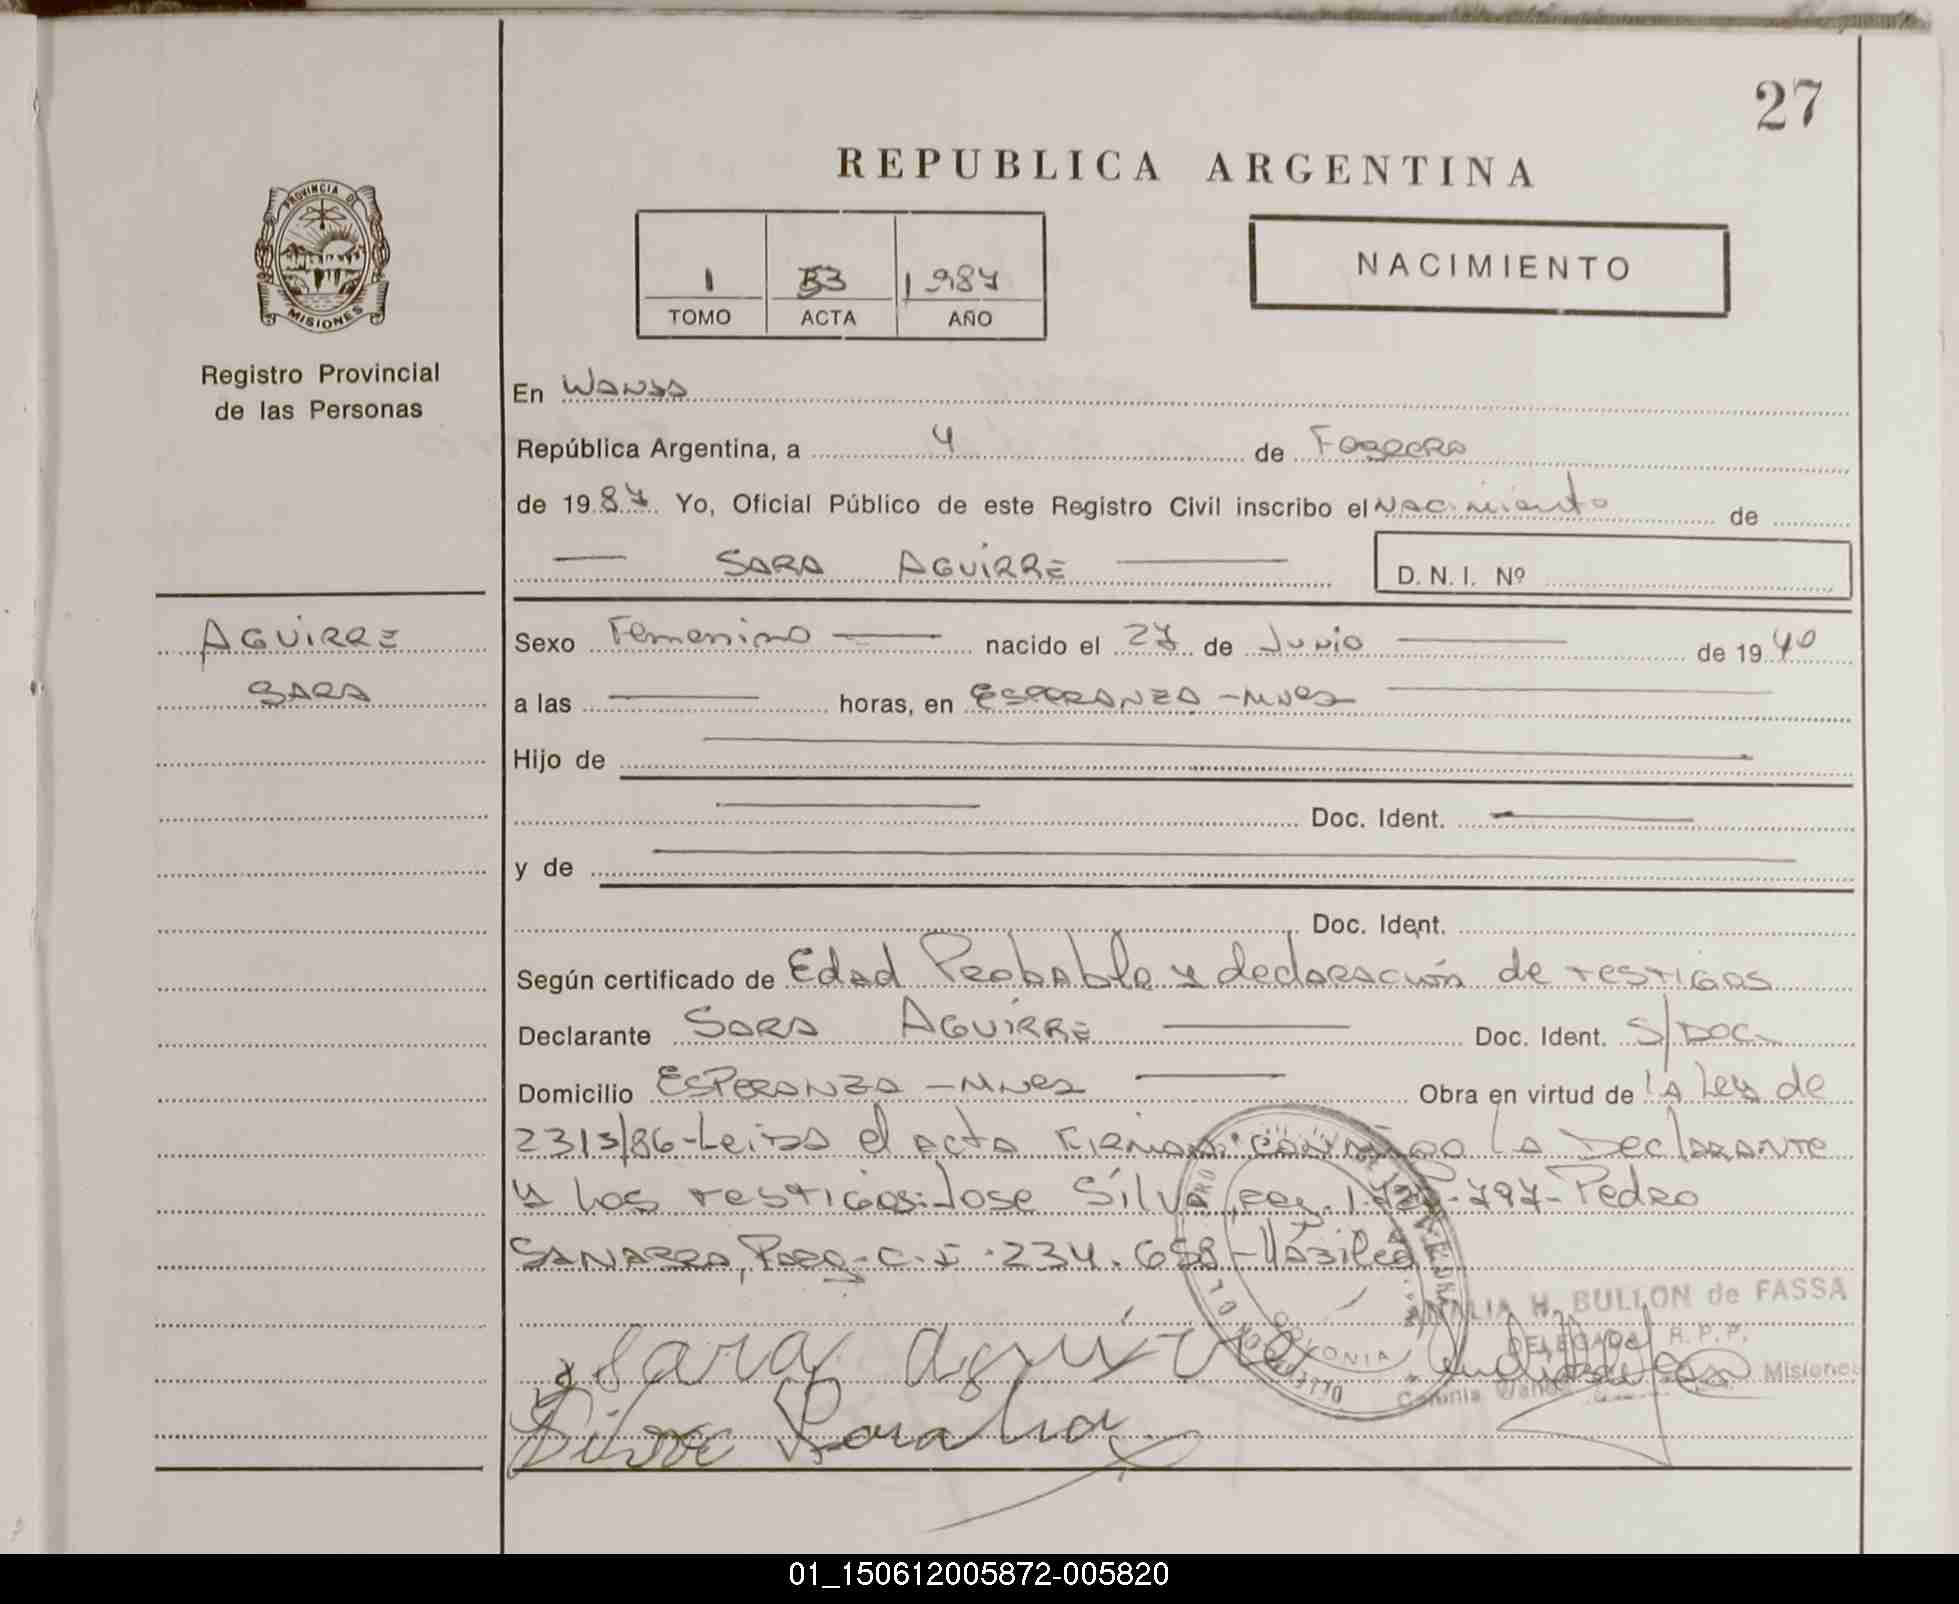 27
REPUBLICA ARGENTINA
PROVINCIA DE
MISIONES
Registro Provincial
de las Personas
1 53 1987
TOMO ACTA AÑO
NACIMIENTO
En Wanda
República Argentina, a 4 de Febrero
de 1987 Yo, Oficial Público de este Registro Civil inscribo el Nacimiento de
SARA AGUIRRE
D. N. I. Nº
AGUIRRE
SARA
Sexo Femenino nacido el 27 de Junio de 1940
a las horas, en ESPERANZA - Mnes
Hijo de
Doc. Ident.
y de
Doc. Ident.
Según certificado de Edad Probable y declaración de testigos
Declarante SARA AGUIRRE Doc. Ident. S/DOC.
Domicilio ESPERANZA - Mnes Obra en virtud de la Ley de
2313/86 - Leida el acta Firman conmigo la Declarante
y los testigos: Jose Silva, 797 - Pedro
SANABRIA, Parg - C.I. 234.658
ANALIA H. BULLON de FASSA
DELEGADA R. P. P.
Colonia Wanda Misiones
COLONIA
Sara aguirre
01_150612005872-005820